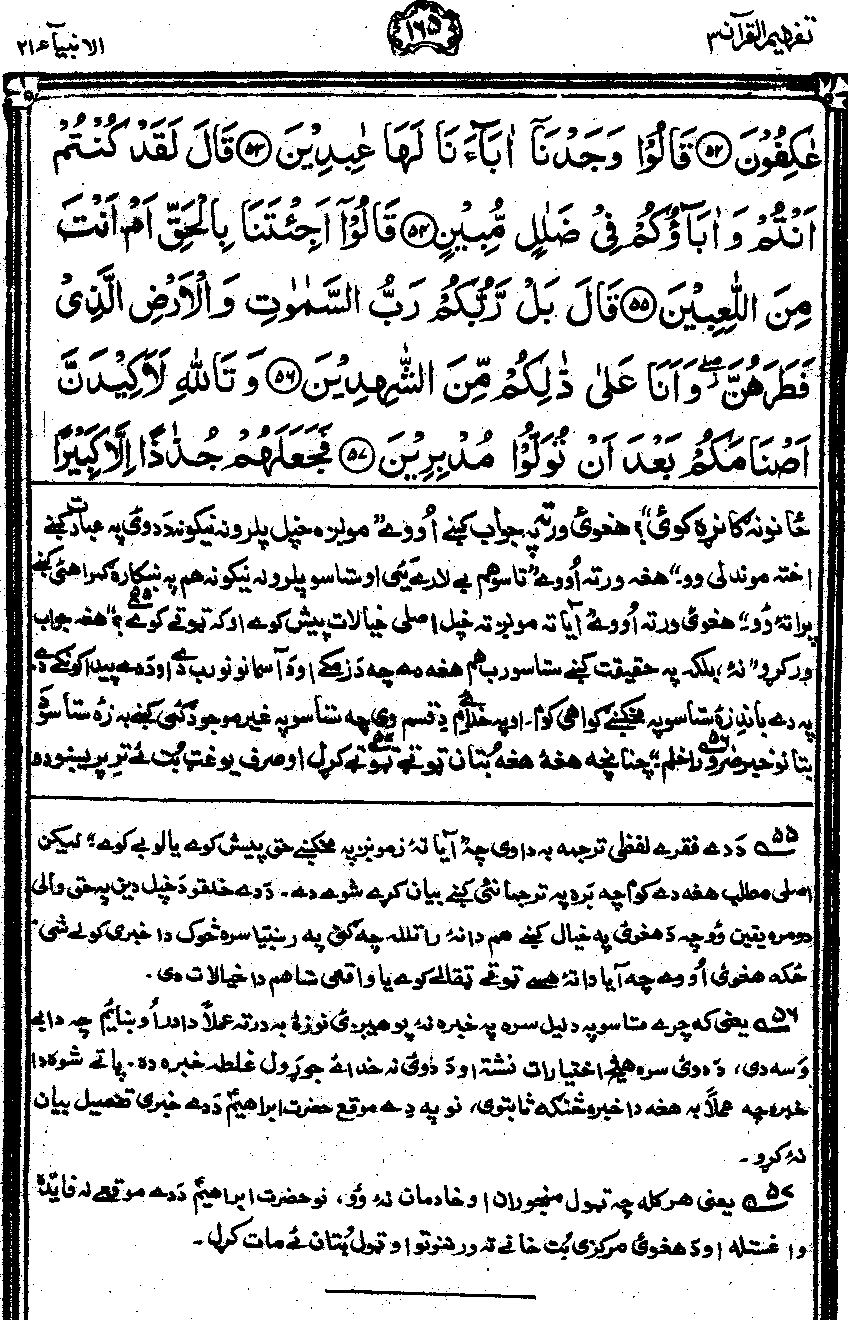 تفهیم القرآن ۳
۱۶۵
الانبیآء ۲۱
عٰكِفُوْنَ ﴿۵۲﴾ قَالُوْا وَجَدْنَاۤ اٰبَآءَنَا لَهَا عٰبِدِیْنَ ﴿۵۳﴾ قَالَ لَقَدْ كُنْتُمْ
اَنْتُمْ وَ اٰبَآؤُكُمْ فِیْ ضَلٰلٍ مُّبِیْنٍ ﴿۵۴﴾ قَالُوْۤا اَجِئْتَنَا بِالْحَقِّ اَمْ اَنْتَ
مِنَ اللّٰعِبِیْنَ ﴿۵۵﴾ قَالَ بَلْ رَّبُّكُمْ رَبُّ السَّمٰوٰتِ وَ الْاَرْضِ الَّذِیْ
فَطَرَهُنَّ ۖ وَ اَنَا عَلٰی ذٰلِكُمْ مِّنَ الشّٰهِدِیْنَ ﴿۵۶﴾ وَ تَاللّٰهِ لَاَكِیْدَنَّ
اَصْنَامَكُمْ بَعْدَ اَنْ تُوَلُّوْا مُدْبِرِیْنَ ﴿۵۷﴾ فَجَعَلَهُمْ جُذٰذًا اِلَّا كَبِیْرًا
ځانونه ګانړه کوئ"؟ هغوئ ورته په جواب کښے اُووے "مونږه خپل پلرونه نیکونه ددوئ په عبادت کښے
اخته موندلی وو۔" هغه ورته اُووے "تاسو هم بے لارے یئی او ستاسو پلرونه نیکونه هم په ښکاره ګمراهئ کښے
پراتهٔ وُو۔" هغوئ ورته اُووے "آیا ته مونږ ته خپل اصلی خیالات پیش کوے او که ټوقے کوے؟" ۵۵ هغه جواب
ورکړو "نهٔ، بلکه په حقیقت کښے ستاسو رب هم هغه دے چه د زمکے او د آسمانونو رب دے او دے پیدا کونکے دے.
په دے باندِ زهٔ ستاسو په مخکښے ګواهی کوم۔ او په خدائے م دِ قسم وی چه ستاسو په غیر موجودګئ کښے به زهٔ ستاسو د
بتانو خبر ضرور اخلم"؛ ۵۶ چنانچه هغهٔ هغه بُتان ټوټے ټوټے کړل ۵۷ او صرف یو غټ بُت ئے ترِ پرېښودو
۵۵ دَ دے فقرے لفظی ترجمه به دا وی چه "آیا تهٔ زمونږ په مخکښے حق پیش کوے یا لوبے کوے"؛ لیکن
اصلی مطلب هغه دے کوم چه بره په ترجمانئ کښے بیان کړے شوے دے۔ دَ دے خلقو دَ خپل دین په حق والی
دومره یقین وو چه دَ هغوئ په خیال کښے هم دا نهٔ راتلله چه ګنی په رښتیا سره څوک دا خبری کولے شی۔
ځکه هغوئ اُووے چه آیا دا تهٔ هسے ټوقے ټقالے کوے یا واقعی ستا هم دا خیالات دی۔
۵۶ یعنی که چرے ستاسو په دلیل سره په خبره نهٔ پوهیږئ نو زهٔ به درته عملاً دا در اُوښایُم چه دا بے
وَسه دی، دَ دوئ سره هیڅ اختیارات نشته او دَ دوئ نه خدائے جوړول غلطه خبره ده۔ پاتے شوه دا
خبره چه عملاً به هغه دا خبره څنګه ثابتوی، نو په دِے موقع حضرت ابراهیمؑ دَ دے خبری تفصیل بیان
نهٔ کړو۔
۵۷ یعنی هر کله چه ټول منجوران او خادمان نهٔ وُو، نو حضرت ابراهیمؑ دَ دے موقعے نه فائده
واغستله او دَ هغوئ مرکزی بُت خانے ته ورننوتو او ټول بُتان ئے مات کړل۔